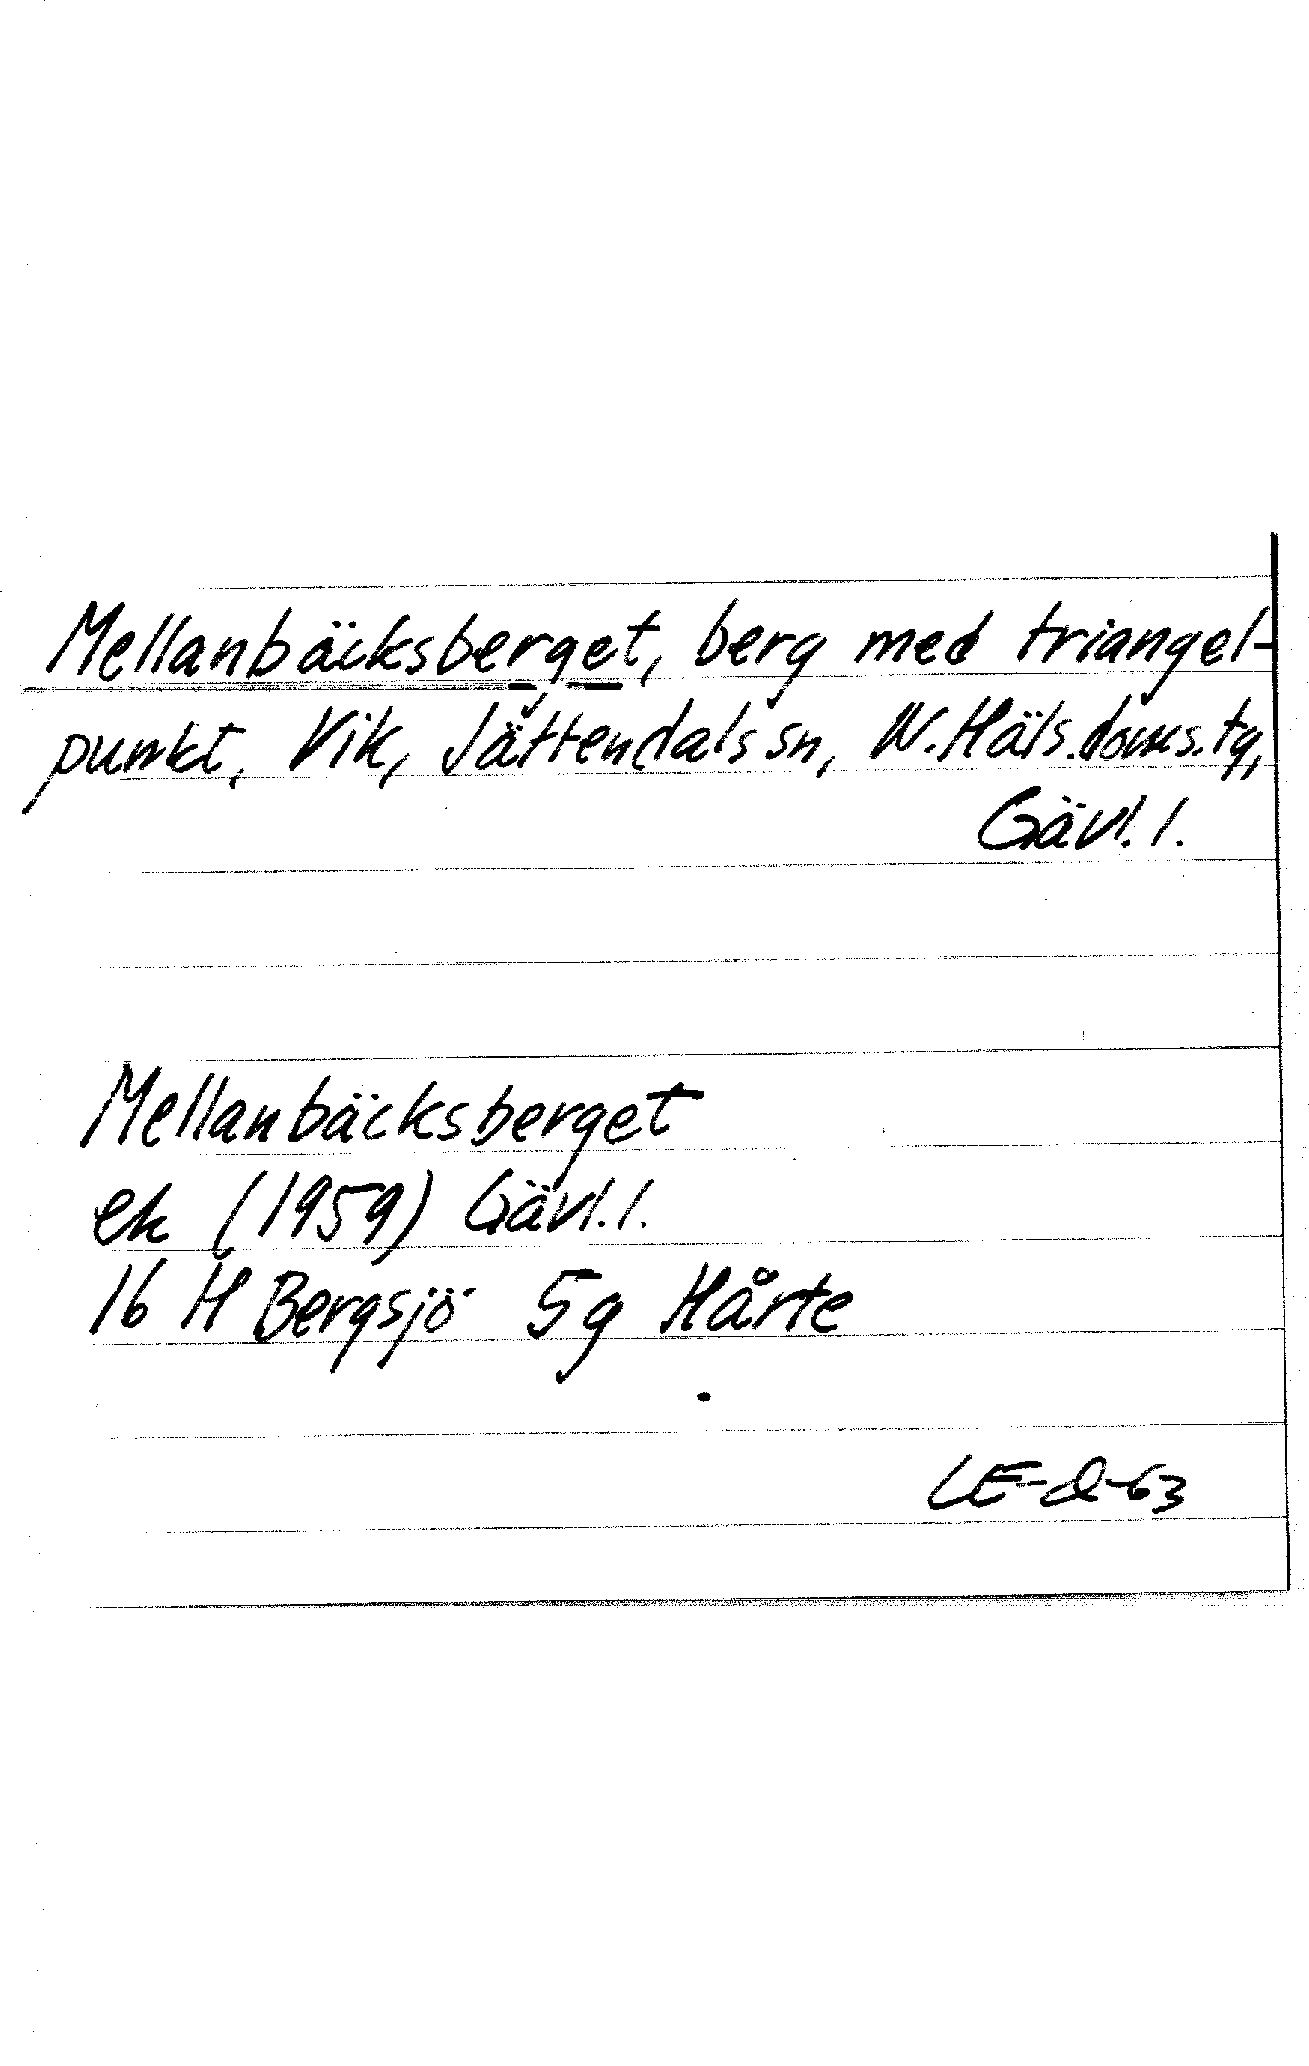 Mellanbäcksberget, berg med triangel-
punkt, Vik, Jättendals sn, N. Häls. doms. tg,
Gävl. l.
Mellanbäcksberget
ek (1959) Gävl. l.
16 H Bergsjö 5g Hårte
LE-d-63